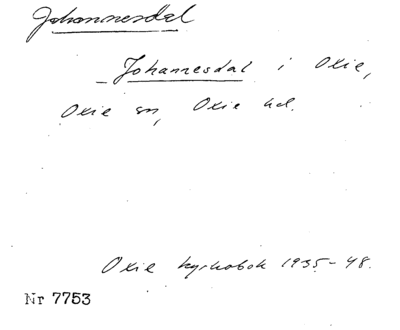 Johannesdal
Johannesdal i Oxie,
Oxie sn, Oxie hd.
Oxie kyrkobok 1935-48.
Nr 7753